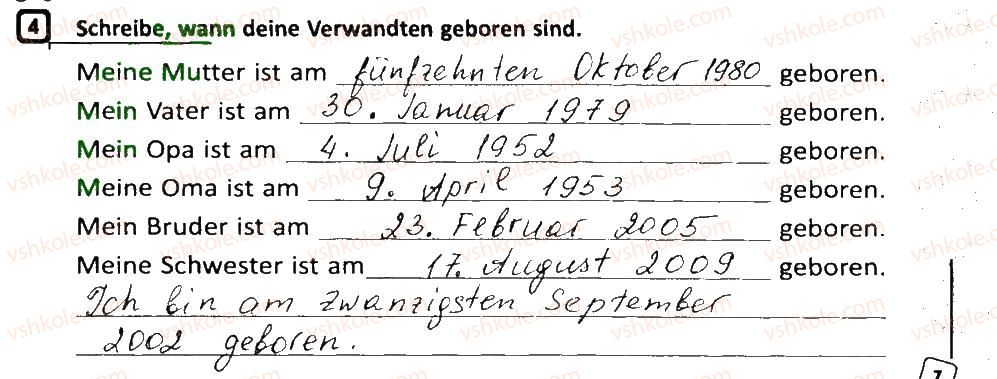 4 Schreibe, wann deine Verwandten geboren sind.
Meine Mutter ist am fünfzehnten Oktober 1980 geboren.
Mein Vater ist am 30. Januar 1979 geboren.
Mein Opa ist am 4. Juli 1952 geboren.
Meine Oma ist am 9. April 1953 geboren.
Mein Bruder ist am 23. Februar 2005 geboren.
Meine Schwester ist am 17. August 2009 geboren.
Ich bin am zwanzigsten September
2002 geboren.
7